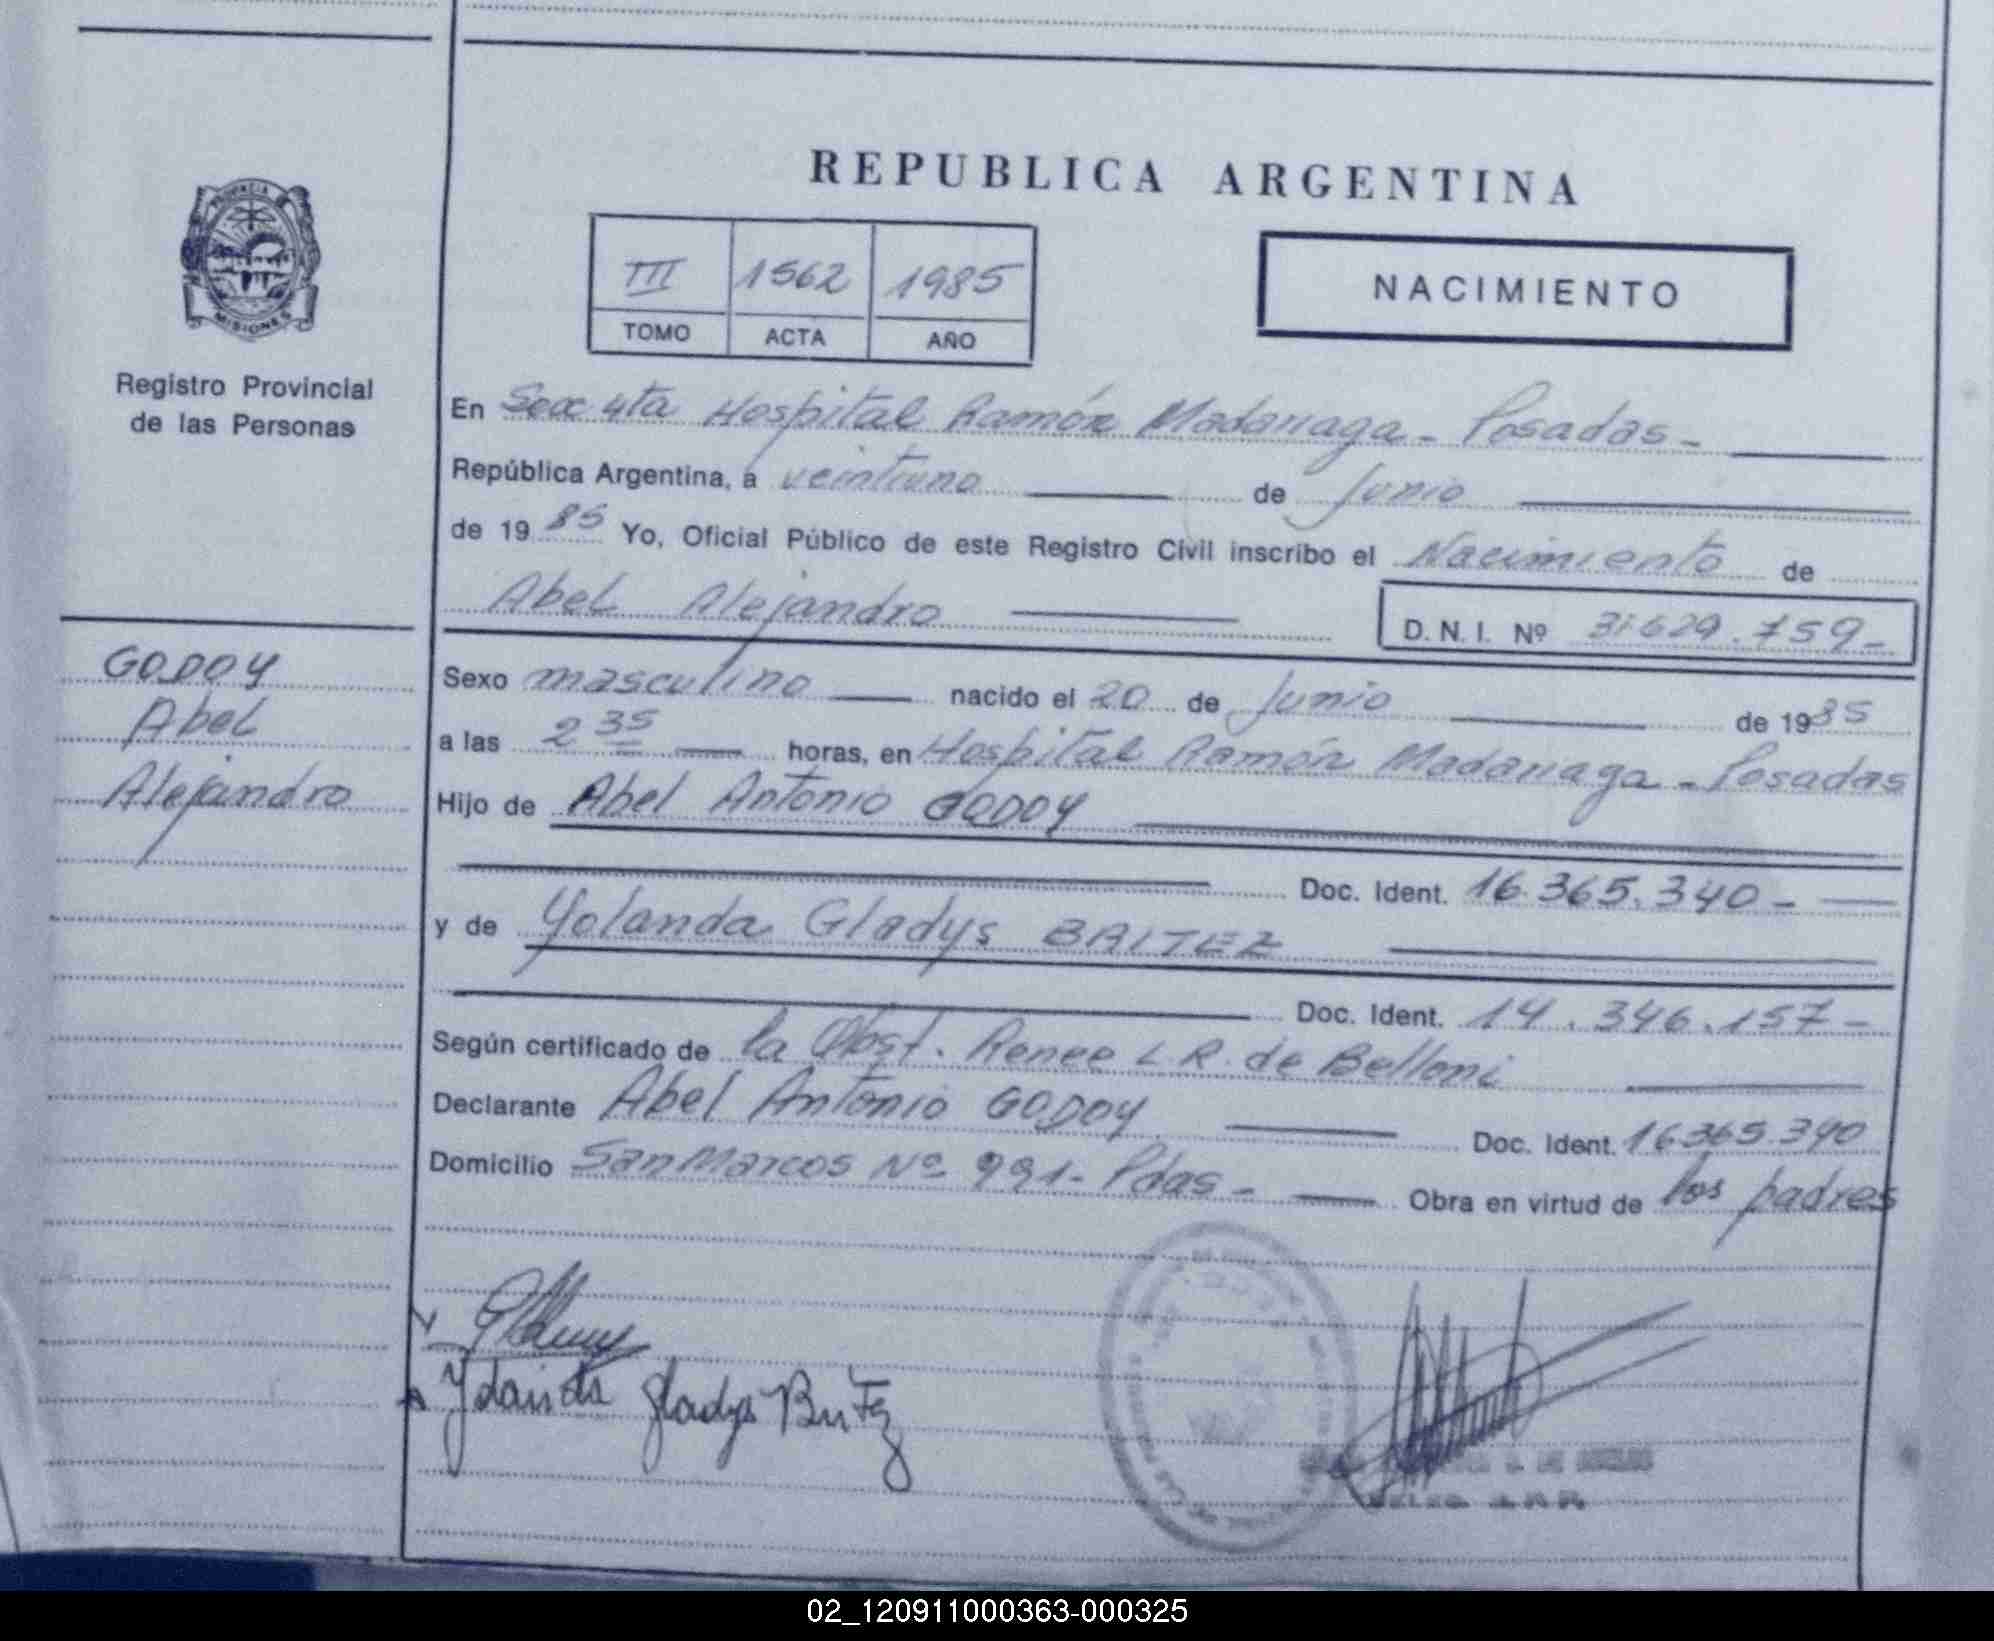 REPUBLICA ARGENTINA
PROVINCIA DE
MISIONES
Registro Provincial
de las Personas
III 1562 1985
TOMO ACTA AÑO
NACIMIENTO
En Secc 4ta Hospital Ramón Madariaga - Posadas -
República Argentina, a veintiuno de Junio
de 19 85 Yo, Oficial Público de este Registro Civil inscribo el Nacimiento de
Abel Alejandro
D. N. I. Nº 31.629.759-
GODOY
Abel
Alejandro
Sexo masculino nacido el 20 de Junio de 1985
a las 2 35 horas, en Hospital Ramón Madariaga - Posadas
Hijo de Abel Antonio GODOY
Doc. Ident. 16.365.340 -
y de Yolanda Gladys BAITEZ
Doc. Ident. 14.346.157 -
Según certificado de la Obst. Renee L R. de Belloni
Declarante Abel Antonio GODOY Doc. Ident. 16365.340
Domicilio San Marcos Nº 991 - Pdas - Obra en virtud de los padres
Yolanda Gladys
02_120911000363-000325